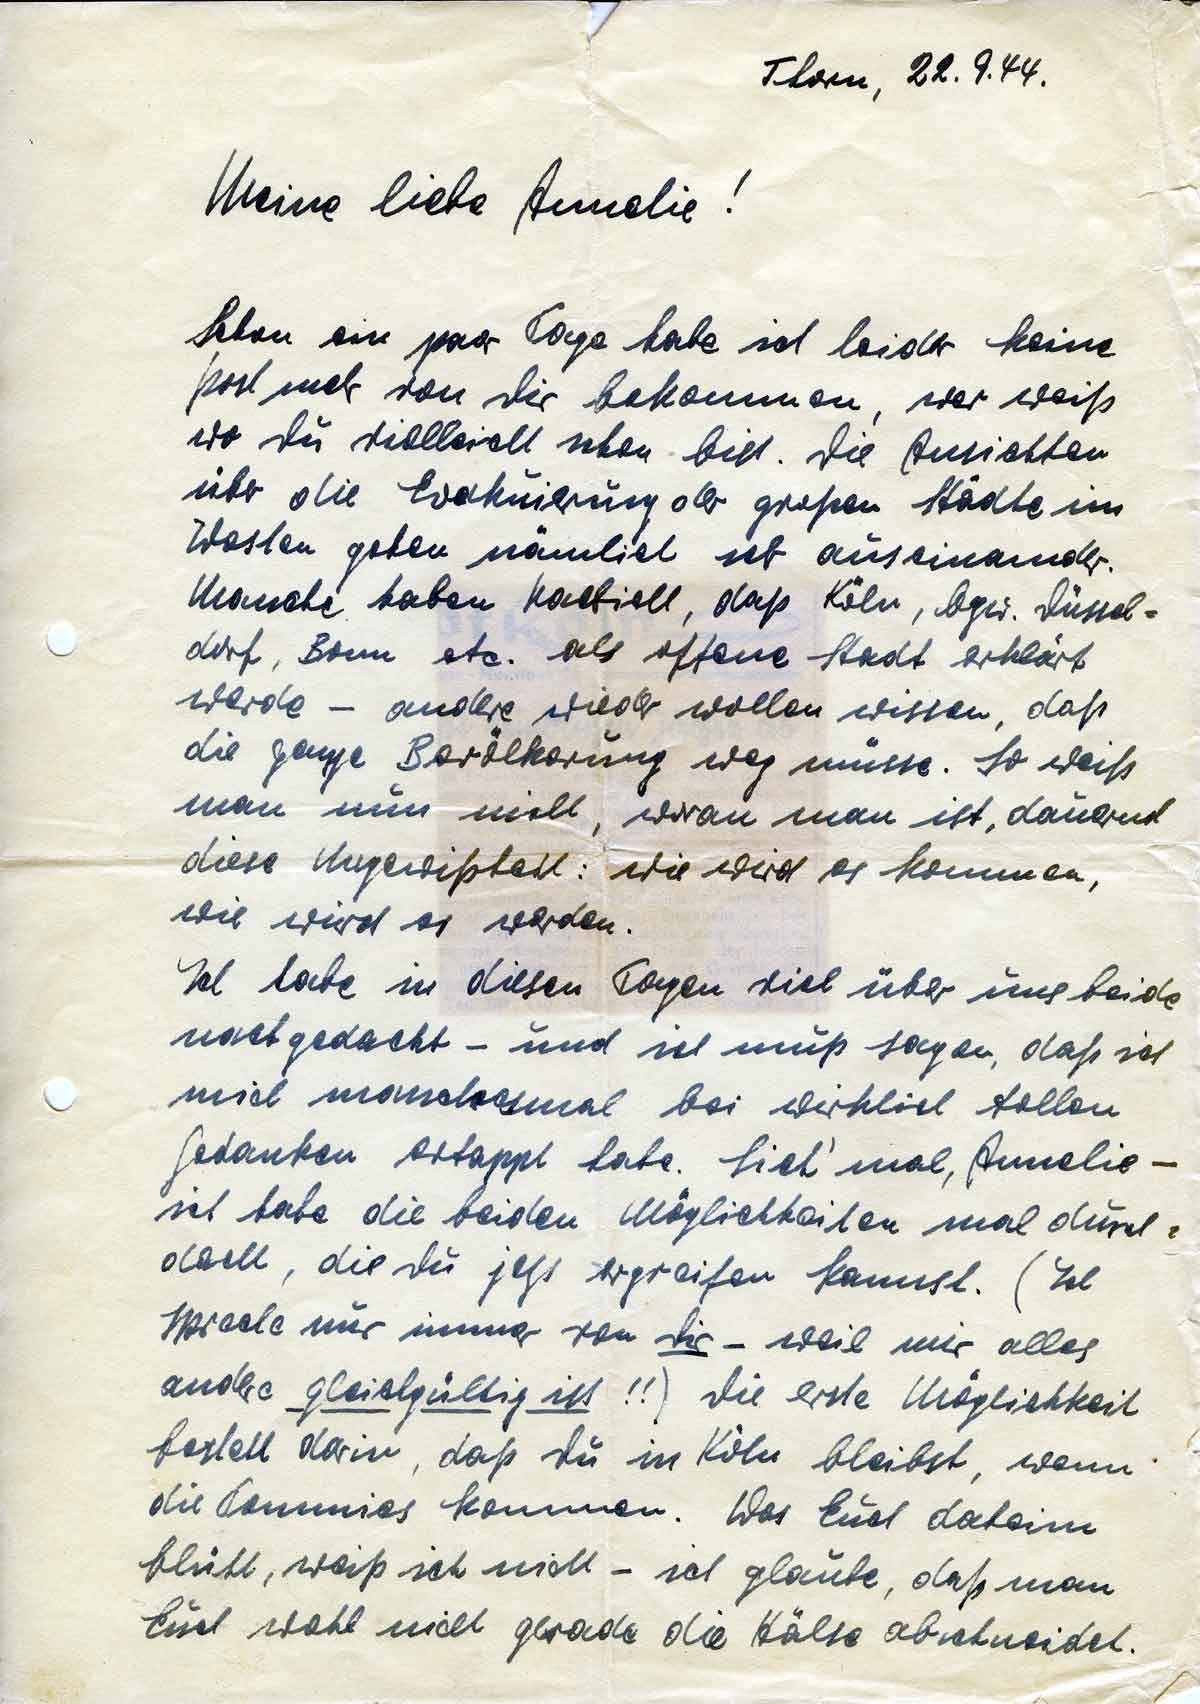 Thorn, 22.9.44.
Meine liebe Annelie!
Schon ein paar Tage habe ich leider keine
Post mehr von Dir bekommen, wer weiß
wo Du vielleicht schon bist. Die Ansichten
über die Evakuierung der großen Städte im
Westen gehen nämlich sehr auseinander.
Manche haben , daß Köln, bzw. Düssel=
dorf, Bonn etc. als offene Stadt erklärt
werde – andere wieder wollen wissen, daß
die ganze Bevölkerung weg müsse. So weiß
man nun nicht, woran man ist, dauernd
diese Ungewißheit: wie wird es kommen,
wie wird es werden.
Ich habe in diesen Tagen viel über uns beide
nachgedacht – und ich muß sagen, daß ich
mich manchesmal bei wirklich tollen
Gedanken ertappt habe. Sieh' mal, Annelie –
ich habe die beiden Möglichkeiten mal durch=
dacht, die Du jetzt ergreifen kannst. (Ich
spreche nur immer von Dir – weil mir alles
andere gleichgültig ist !!) Die erste Möglichkeit
besteht darin, daß Du in Köln bleibst, wenn
die Tommies kommen. Was Euch daheim
blüht, weiß ich nicht – ich glaube, daß man
Euch wohl nicht gerade die Hälse abschneidet.